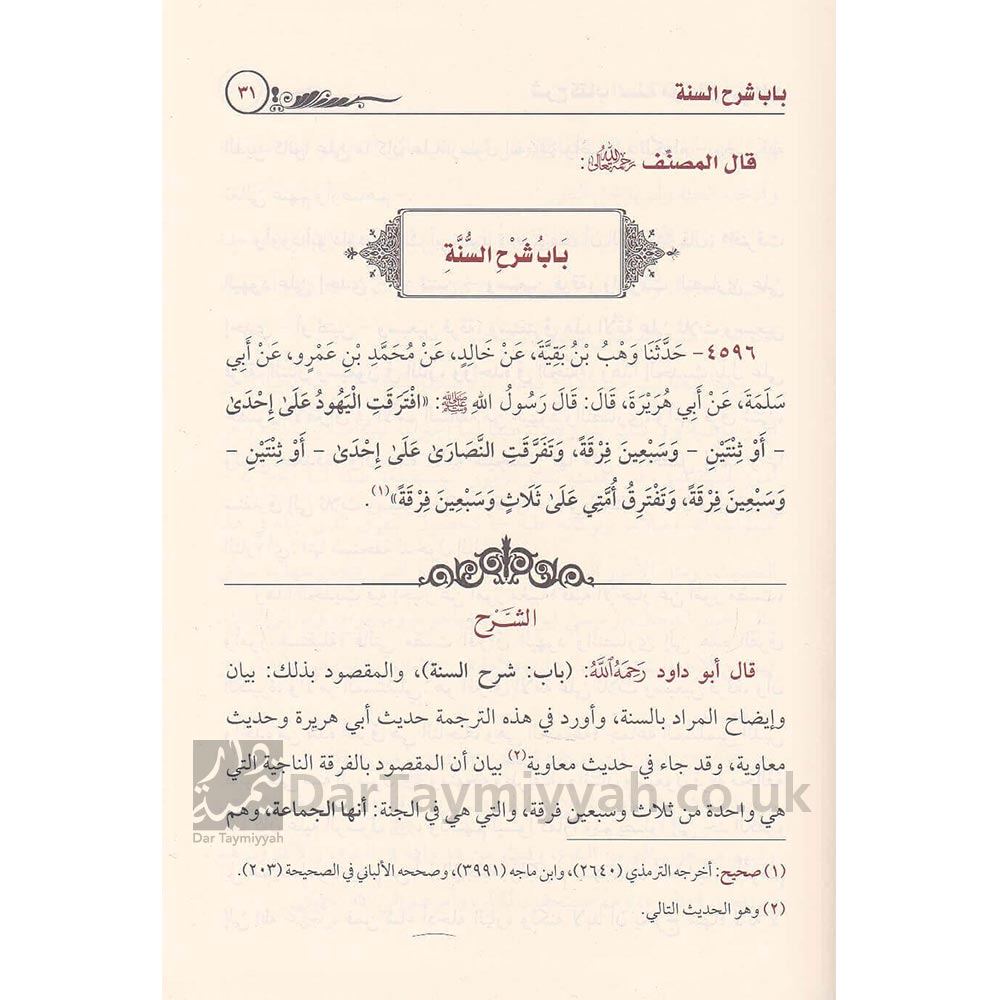 باب شرح السنة
٣١
قال المصنف رحمه الله تعالى:
بَابُ شَرْحِ السُّنَّةِ
٤٥٩٦- حَدَّثَنَا وَهْبُ بْنُ بَقِيَّةَ، عَنْ خَالِدٍ، عَنْ مُحَمَّدِ بْنِ عَمْرٍو، عَنْ أَبِي
سَلَمَةَ، عَنْ أَبِي هُرَيْرَةَ، قَالَ: قَالَ رَسُولُ اللهِ ﷺ: «افْتَرَقَتِ الْيَهُودُ عَلَىٰ إِحْدَىٰ
- أَوْ ثِنْتَيْنِ - وَسَبْعِينَ فِرْقَةً، وَتَفَرَّقَتِ النَّصَارَىٰ عَلَىٰ إِحْدَىٰ - أَوْ ثِنْتَيْنِ -
وَسَبْعِينَ فِرْقَةً، وَتَفْتَرِقُ أُمَّتِي عَلَىٰ ثَلَاثٍ وَسَبْعِينَ فِرْقَةً»(١).
الشَّرْح
قال أبو داود رَحِمَهُ ٱللَّهُ: (باب: شرح السنة)، والمقصود بذلك: بيان
وإيضاح المراد بالسنة، وأورد في هذه الترجمة حديث أبي هريرة وحديث
معاوية، وقد جاء في حديث معاوية(٢) بيان أن المقصود بالفرقة الناجية التي
هي واحدة من ثلاث وسبعين فرقة، والتي هي في الجنة: أنها الجماعة، وهم
(١) صحيح: أخرجه الترمذي (٢٦٤٠)، وابن ماجه (٣٩٩١)، وصححه الألباني في الصحيحة (٢٠٣).
(٢) وهو الحديث التالي.
Dar Taymiyyah
DarTaymiyyah.co.uk